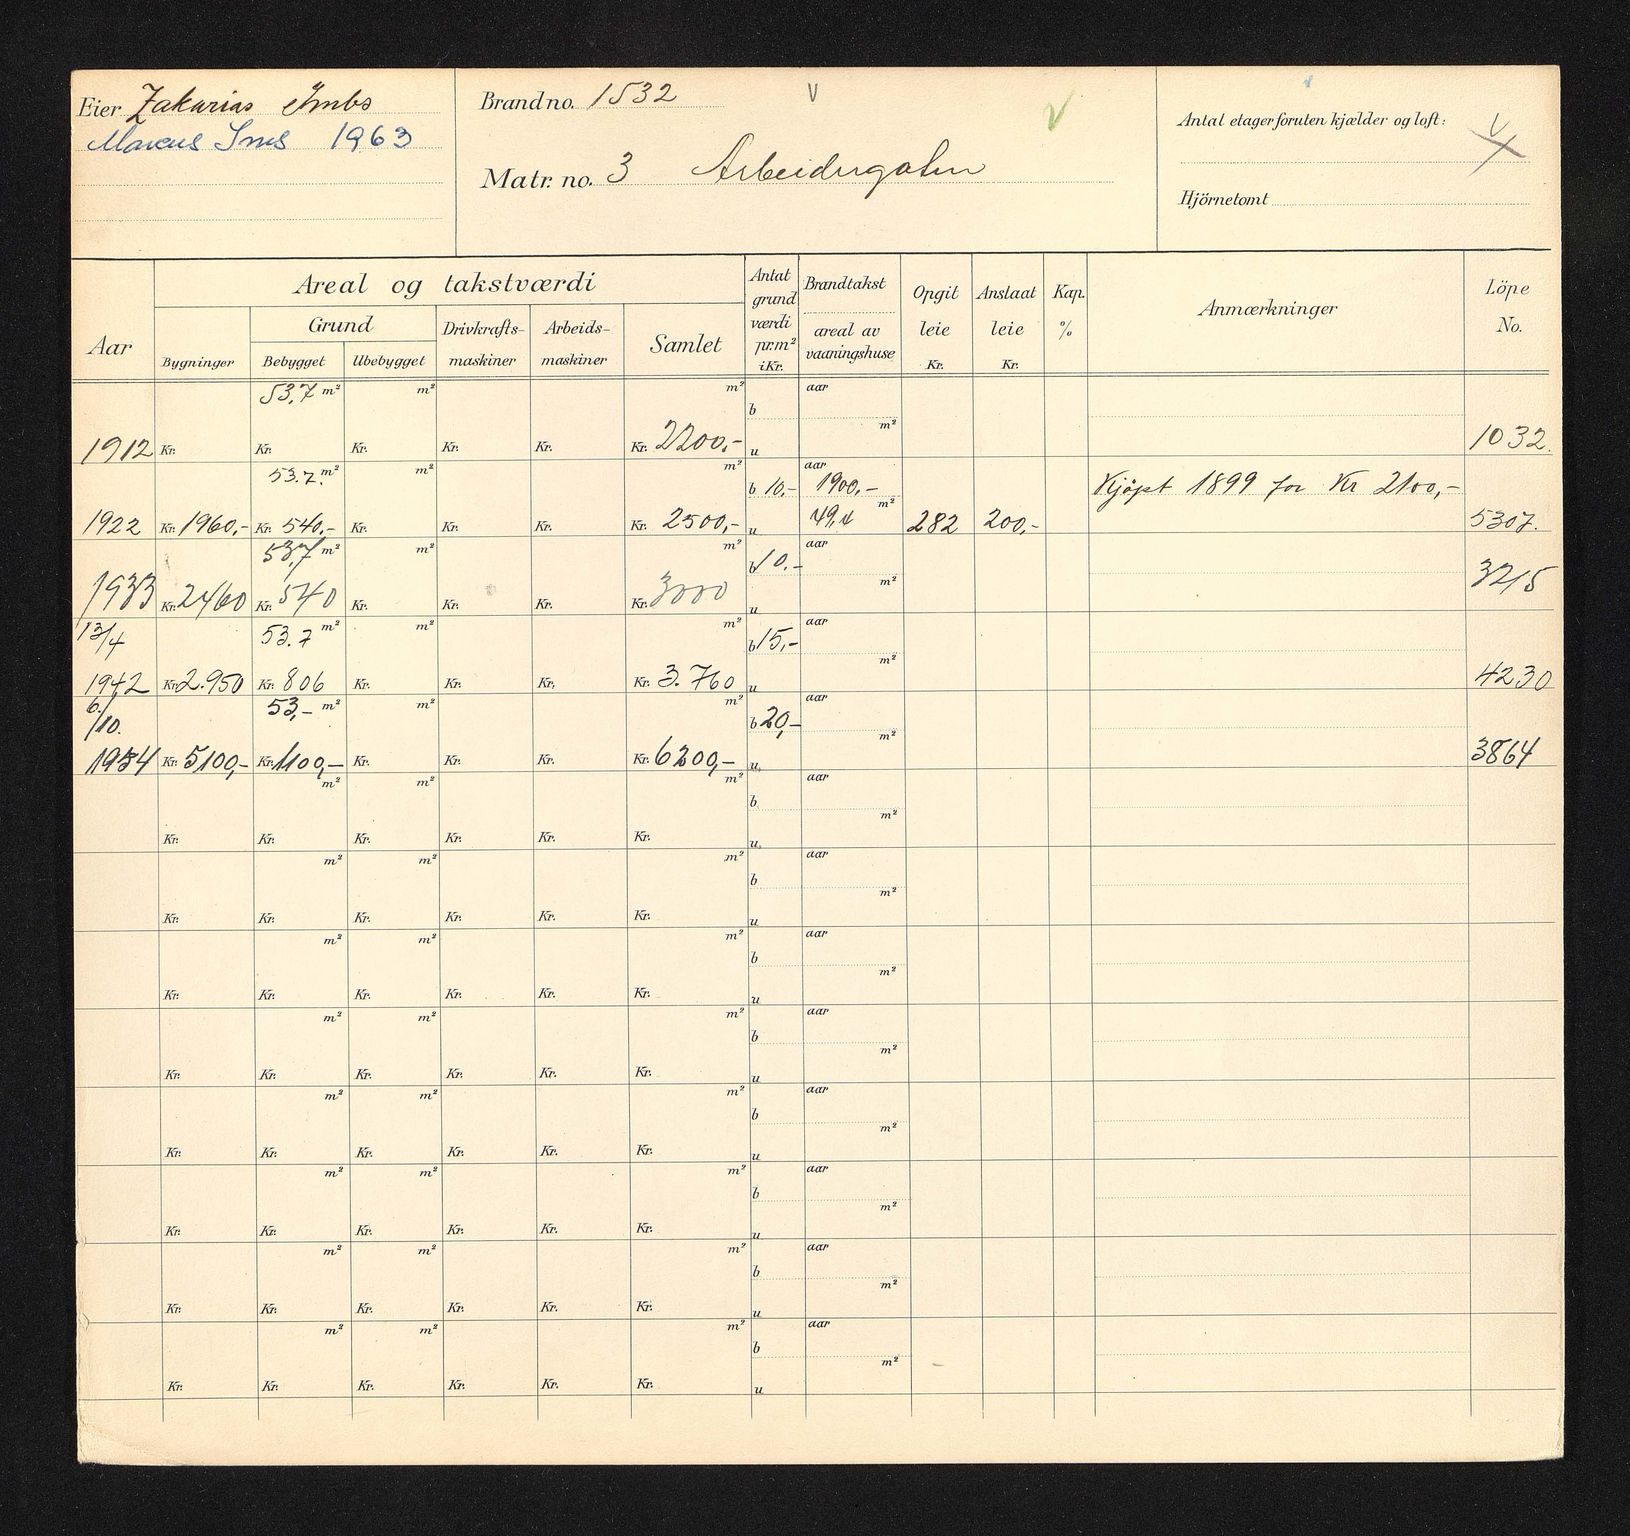 Eier Zakarias Imbs
Marcus Ims 1963
Brand no. 1532
Matr. no. 3 Arbeidergaten
Antal etager foruten kjælder og loft:
Hjörnetomt
Aar
Areal og takstværdi
Bygninger
Grund
Bebygget
Ubebygget
Drivkrafts-
maskiner
Arbeids-
maskiner
Samlet
Antat
grund
værdi
pr.m²
i Kr.
Brandtakst
areal av
vaaningshuse
Opgit
leie
Kr.
Anslaat
leie
Kr.
Kap.
%
Anmærkninger
Löpe
No.
53,7 m² m² m² aar
b
m²
1912 Kr. Kr. Kr. Kr. Kr. Kr. 2200,- u 1032.
53.7. m² m² m² aar
b 10,- 1900,- Kjøpt 1899 for Kr 2100,-
m²
1922 Kr. 1960,- Kr. 540,- Kr. Kr. Kr. Kr. 2500,- u 49,4 282 200,- 5307.
53,7 m² m² m² aar
b 10.-
m²
1933 Kr. 2460 Kr. 540 Kr. Kr. Kr. Kr. 3000 u 3215
13/4 53.7 m² m² m² aar
b 15,-
m²
1942 Kr. 2.950 Kr. 806 Kr. Kr. Kr. Kr. 3.760 u 4230
6/10. 53,- m² m² m² aar
b 20,-
m²
1954 Kr. 5100,- Kr. 1100,- Kr. Kr. Kr. Kr. 6200,- u 3864
m² m² m² aar
b
m²
Kr. Kr. Kr. Kr. Kr. Kr. u
m² m² m² aar
b
m²
Kr. Kr. Kr. Kr. Kr. Kr. u
m² m² m² aar
b
m²
Kr. Kr. Kr. Kr. Kr. Kr. u
m² m² m² aar
b
m²
Kr. Kr. Kr. Kr. Kr. Kr. u
m² m² m² aar
b
m²
Kr. Kr. Kr. Kr. Kr. Kr. u
m² m² m² aar
b
m²
Kr. Kr. Kr. Kr. Kr. Kr. u
m² m² m² aar
b
m²
Kr. Kr. Kr. Kr. Kr. Kr. u
m² m² m² aar
b
m²
Kr. Kr. Kr. Kr. Kr. Kr. u